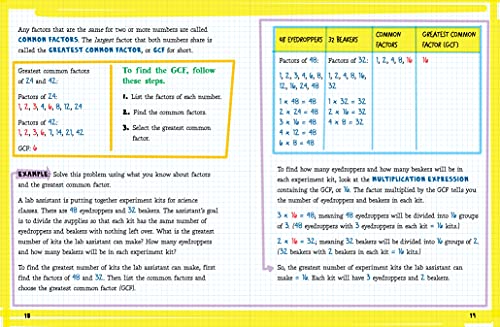 Any factors that are the same for two or more numbers are called
COMMON FACTORS. The largest factor that both numbers share is
called the GREATEST COMMON FACTOR, or GCF for short.
Greatest common factors
of 24 and 42:
Factors of 24:
1, 2, 3, 4, 6, 8, 12, 24
Factors of 42:
1, 2, 3, 6, 7, 14, 21, 42
GCF: 6
To find the GCF, follow
these steps.
1. List the factors of each number.
2. Find the common factors.
3. Select the greatest common
factor.
EXAMPLE: Solve this problem using what you know about factors
and the greatest common factor.
A lab assistant is putting together experiment kits for science
classes. There are 48 eyedroppers and 32 beakers. The assistant's
goal is to divide the supplies so that each kit has the same number of
eyedroppers and beakers with nothing left over. What is the greatest
number of kits the lab assistant can make? How many eyedroppers
and how many beakers will be in each experiment kit?
To find the greatest number of kits the lab assistant can make, first
find the factors of 48 and 32. Then list the common factors and
choose the greatest common factor (GCF).
18
48 EYEDROPPERS 32 BEAKERS COMMON FACTORS GREATEST COMMON FACTOR (GCF)
Factors of 48: Factors of 32: 1, 2, 4, 8, 16 16
1, 2, 3, 4, 6, 8, 1, 2, 4, 8, 16,
12, 16, 24, 48 32
1 × 48 = 48 1 × 32 = 32
2 × 24 = 48 2 × 16 = 32
3 × 16 = 48 4 × 8 = 32
4 × 12 = 48
6 × 8 = 48
To find how many eyedroppers and how many beakers will be in
each experiment kit, look at the MULTIPLICATION EXPRESSION
containing the GCF, or 16. The factor multiplied by the GCF tells you
the number of eyedroppers and beakers in each kit.
3 × 16 = 48, meaning 48 eyedroppers will be divided into 16 groups
of 3. (48 eyedroppers with 3 eyedroppers in each kit = 16 kits.)
2 × 16 = 32, meaning 32 beakers will be divided into 16 groups of 2.
(32 beakers with 2 beakers in each kit = 16 kits.)
So, the greatest number of experiment kits the lab assistant can
make = 16. Each kit will have 3 eyedroppers and 2 beakers.
19